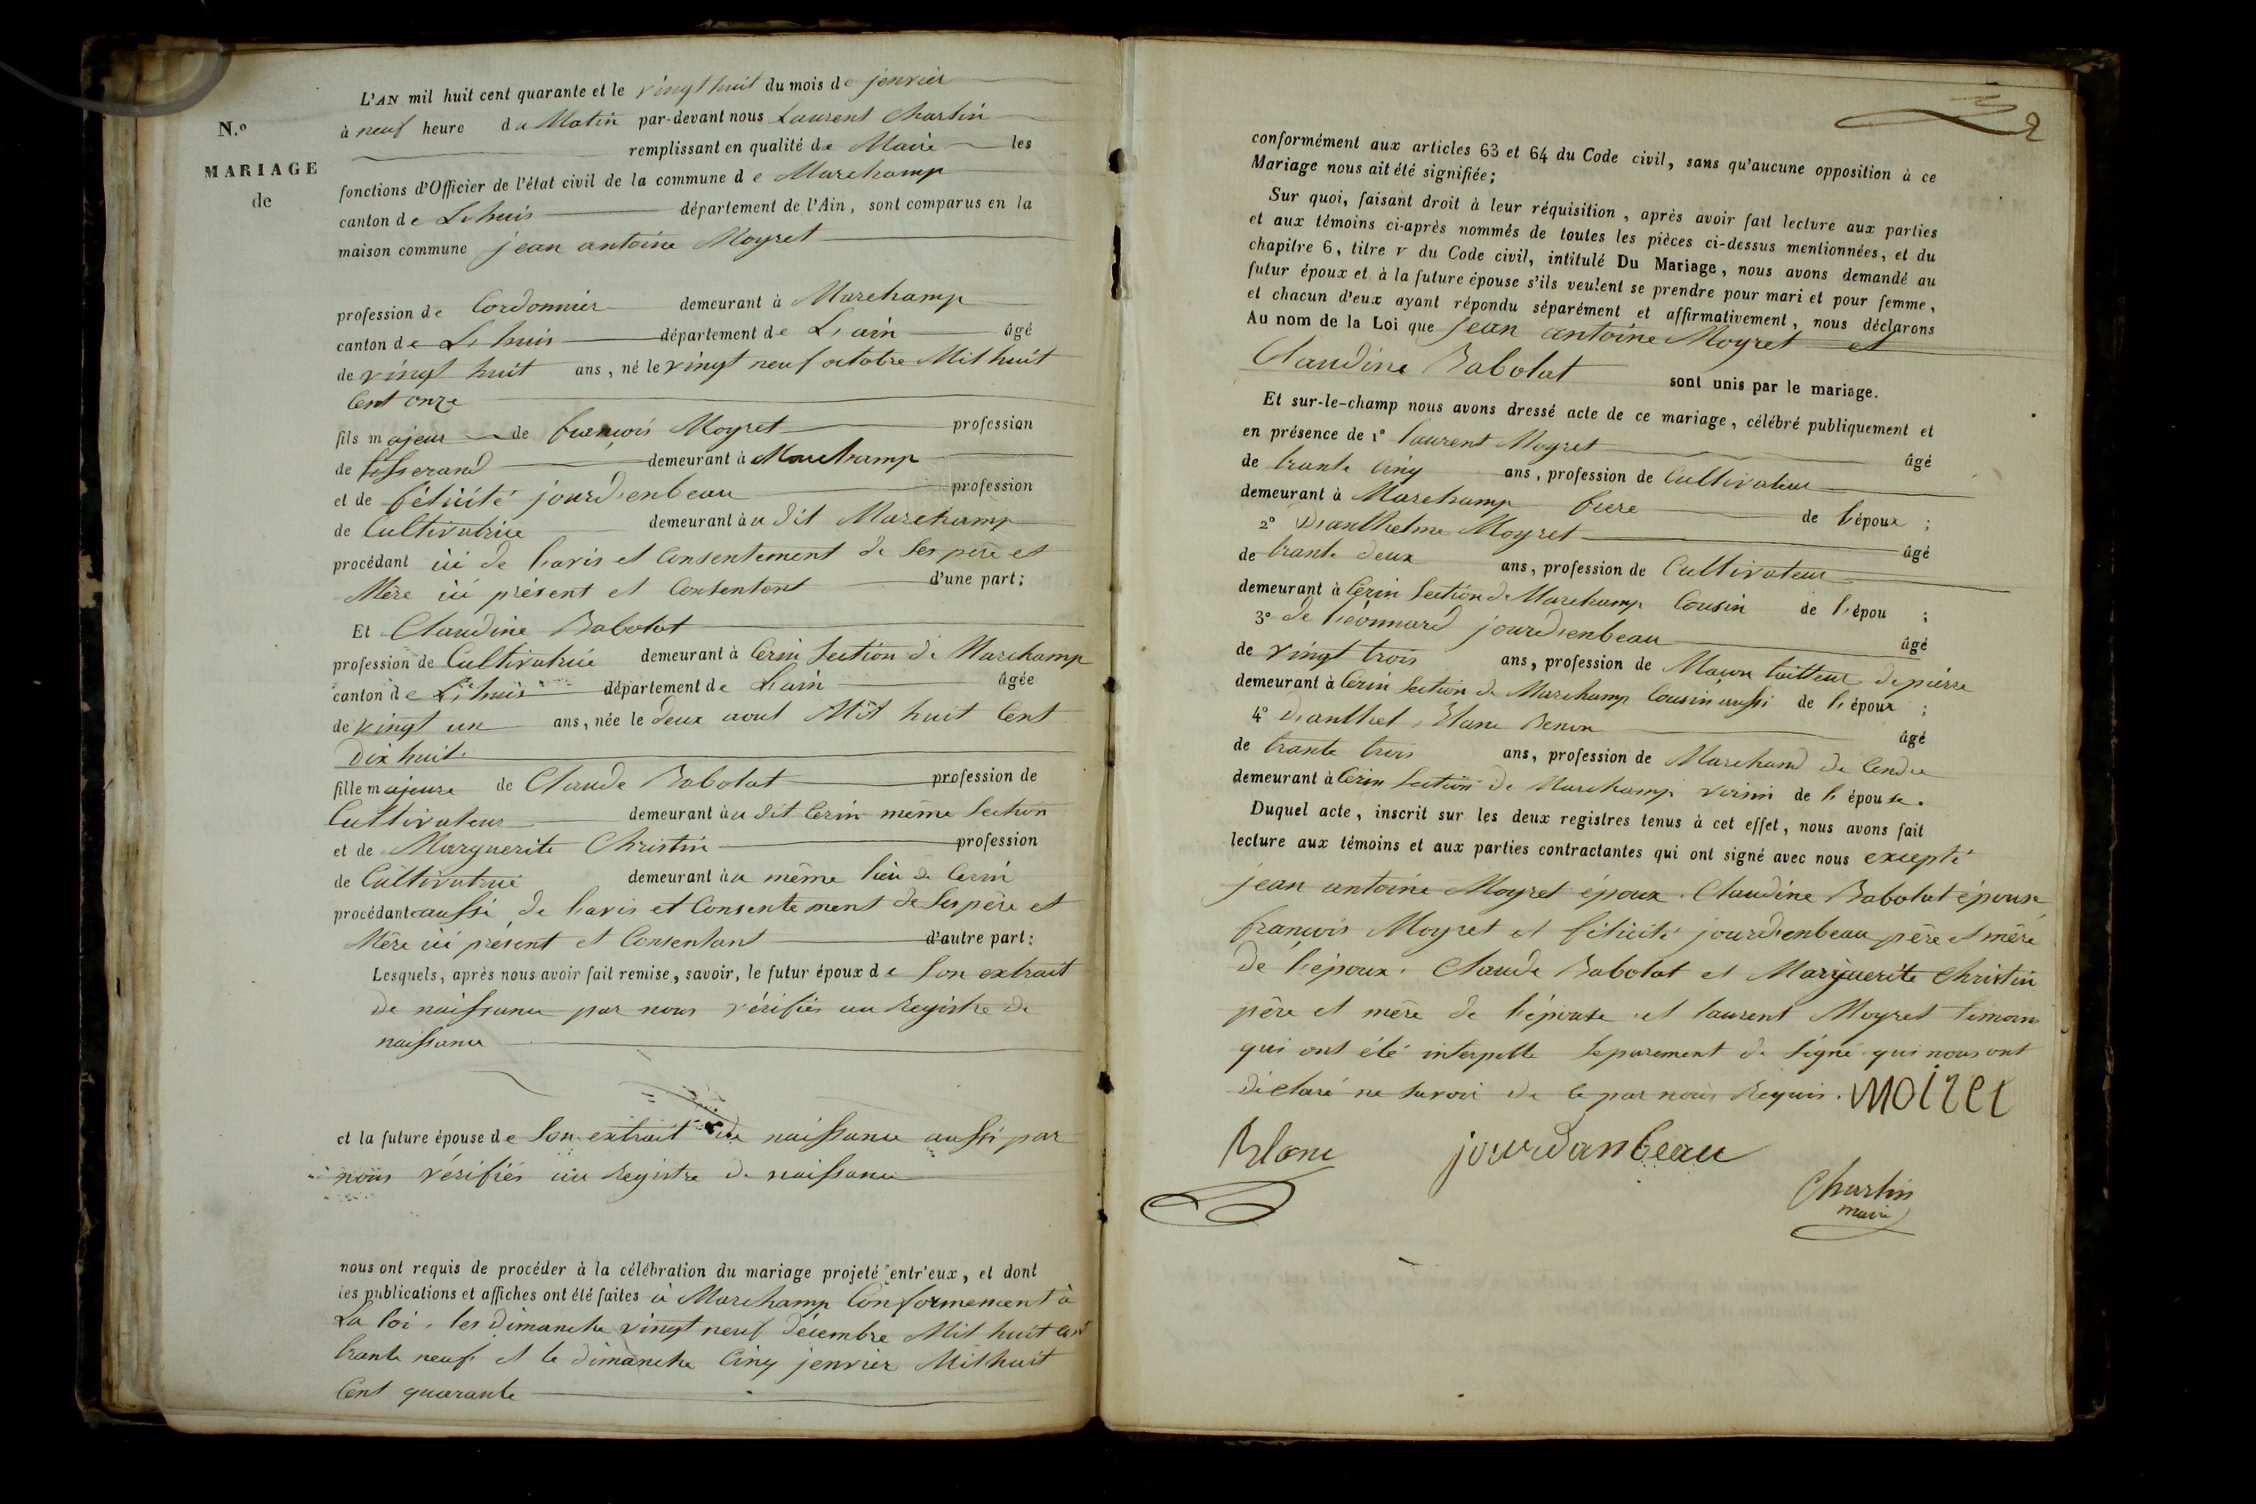 N.º
MARIAGE
de
L'AN mil huit cent quarante et le vingt huit du mois de jenvier
à neuf heure du Matin par-devant nous Laurent Charlin
remplissant en qualité de Maire les
fonctions d'Officier de l'état civil de la commune de Marchamp
canton de Lhuis département de l'Ain, sont comparus en la
maison commune jean antoine Moyret
profession de Cordonnier demeurant à Marchamp
canton de Lhuis département de L'ain âgé
de vingt huit ans, né le vingt neuf octobre Mil huit
Cent onze
fils majeur de françois Moyret profession
de tisserand demeurant à Marchamp
et de félicité jourdienbeau profession
de Cultivatrice demeurant au dit Marchamp
procédant ici de l'avis et Consentement de Ses père et
Mère ici présent et Consentent d'une part;
Et Claudine Babolat
profession de Cultivatrice demeurant à Cerin Section de Marchamp
canton de Lhuis département de L'ain âgée
de vingt un ans, née le deux aout Mil huit Cent
Dix huit
fille majeure de Claude Babolat profession de
Cultivateur demeurant au dit Cerin même Section
et de Marguerite Christin profession
de Cultivatrice demeurant au même lieu de Cerin
procédant aussi de l'avis et Consentement de Ses père et
Mère ici présent et Consentant d'autre part:
Lesquels, après nous avoir fait remise, savoir, le futur époux de Son extrait
de naissance par nous vérifiés au Registre de
naissance
et la future épouse de Son extrait de naissance aussi par
nous vérifiés au Registre de naissance
nous ont requis de procéder à la célébration du mariage projeté entr'eux, et dont
les publications et affiches ont été faites à Marchamp Conformement à
La loi, les dimanche vingt neuf décembre Mil huit cent
trante neuf et le dimanche Cinq jenvier Mil huit
Cent quarante
2
conformément aux articles 63 et 64 du Code civil, sans qu'aucune opposition à ce
Mariage nous ait été signifiée;
Sur quoi, faisant droit à leur réquisition, après avoir fait lecture aux parties
et aux témoins ci-après nommés de toutes les pièces ci-dessus mentionnées, et du
chapitre 6, titre v du Code civil, intitulé Du Mariage, nous avons demandé au
futur époux et à la future épouse s'ils veulent se prendre pour mari et pour femme,
et chacun d'eux ayant répondu séparément et affirmativement, nous déclarons
Au nom de la Loi que jean antoine Moyret et
Claudine Babolat sont unis par le mariage.
Et sur-le-champ nous avons dressé acte de ce mariage, célébré publiquement et
en présence de 1º laurent Moyret âgé
de trante Cinq ans, profession de Cultivateur
demeurant à Marchamp frere de l'époux;
2º Dianthelme Moyret âgé
de trante deux ans, profession de Cultivateur
demeurant à Cerin Section de Marchamp Cousin de l'épou;
3º de Léonnard jourdienbeau âgé
de vingt trois ans, profession de Maçon tailleur de pierre
demeurant à Cerin Section de Marchamp Cousin aussi de l'époux;
4º Dianthel Blanc Benon âgé
de trante trois ans, profession de Marchand de Cendre
demeurant à Cerin Section de Marchamp voisin de l'épouse.
Duquel acte, inscrit sur les deux registres tenus à cet effet, nous avons fait
lecture aux témoins et aux parties contractantes qui ont signé avec nous excepté
jean antoine Moyret époux. Claudine Babolat épouse
françois Moyret et félicité jourdienbeau père et mère
de l'époux. Claude Babolat et Marguerite Christin
père et mère de l'épouse et laurent Moyret témoin
qui ont été interpellé separement de Signé qui nous ont
déclaré ne savoir de ce par nous Requis. Moiret
Blanc jourdanbeau
Charlin
maire